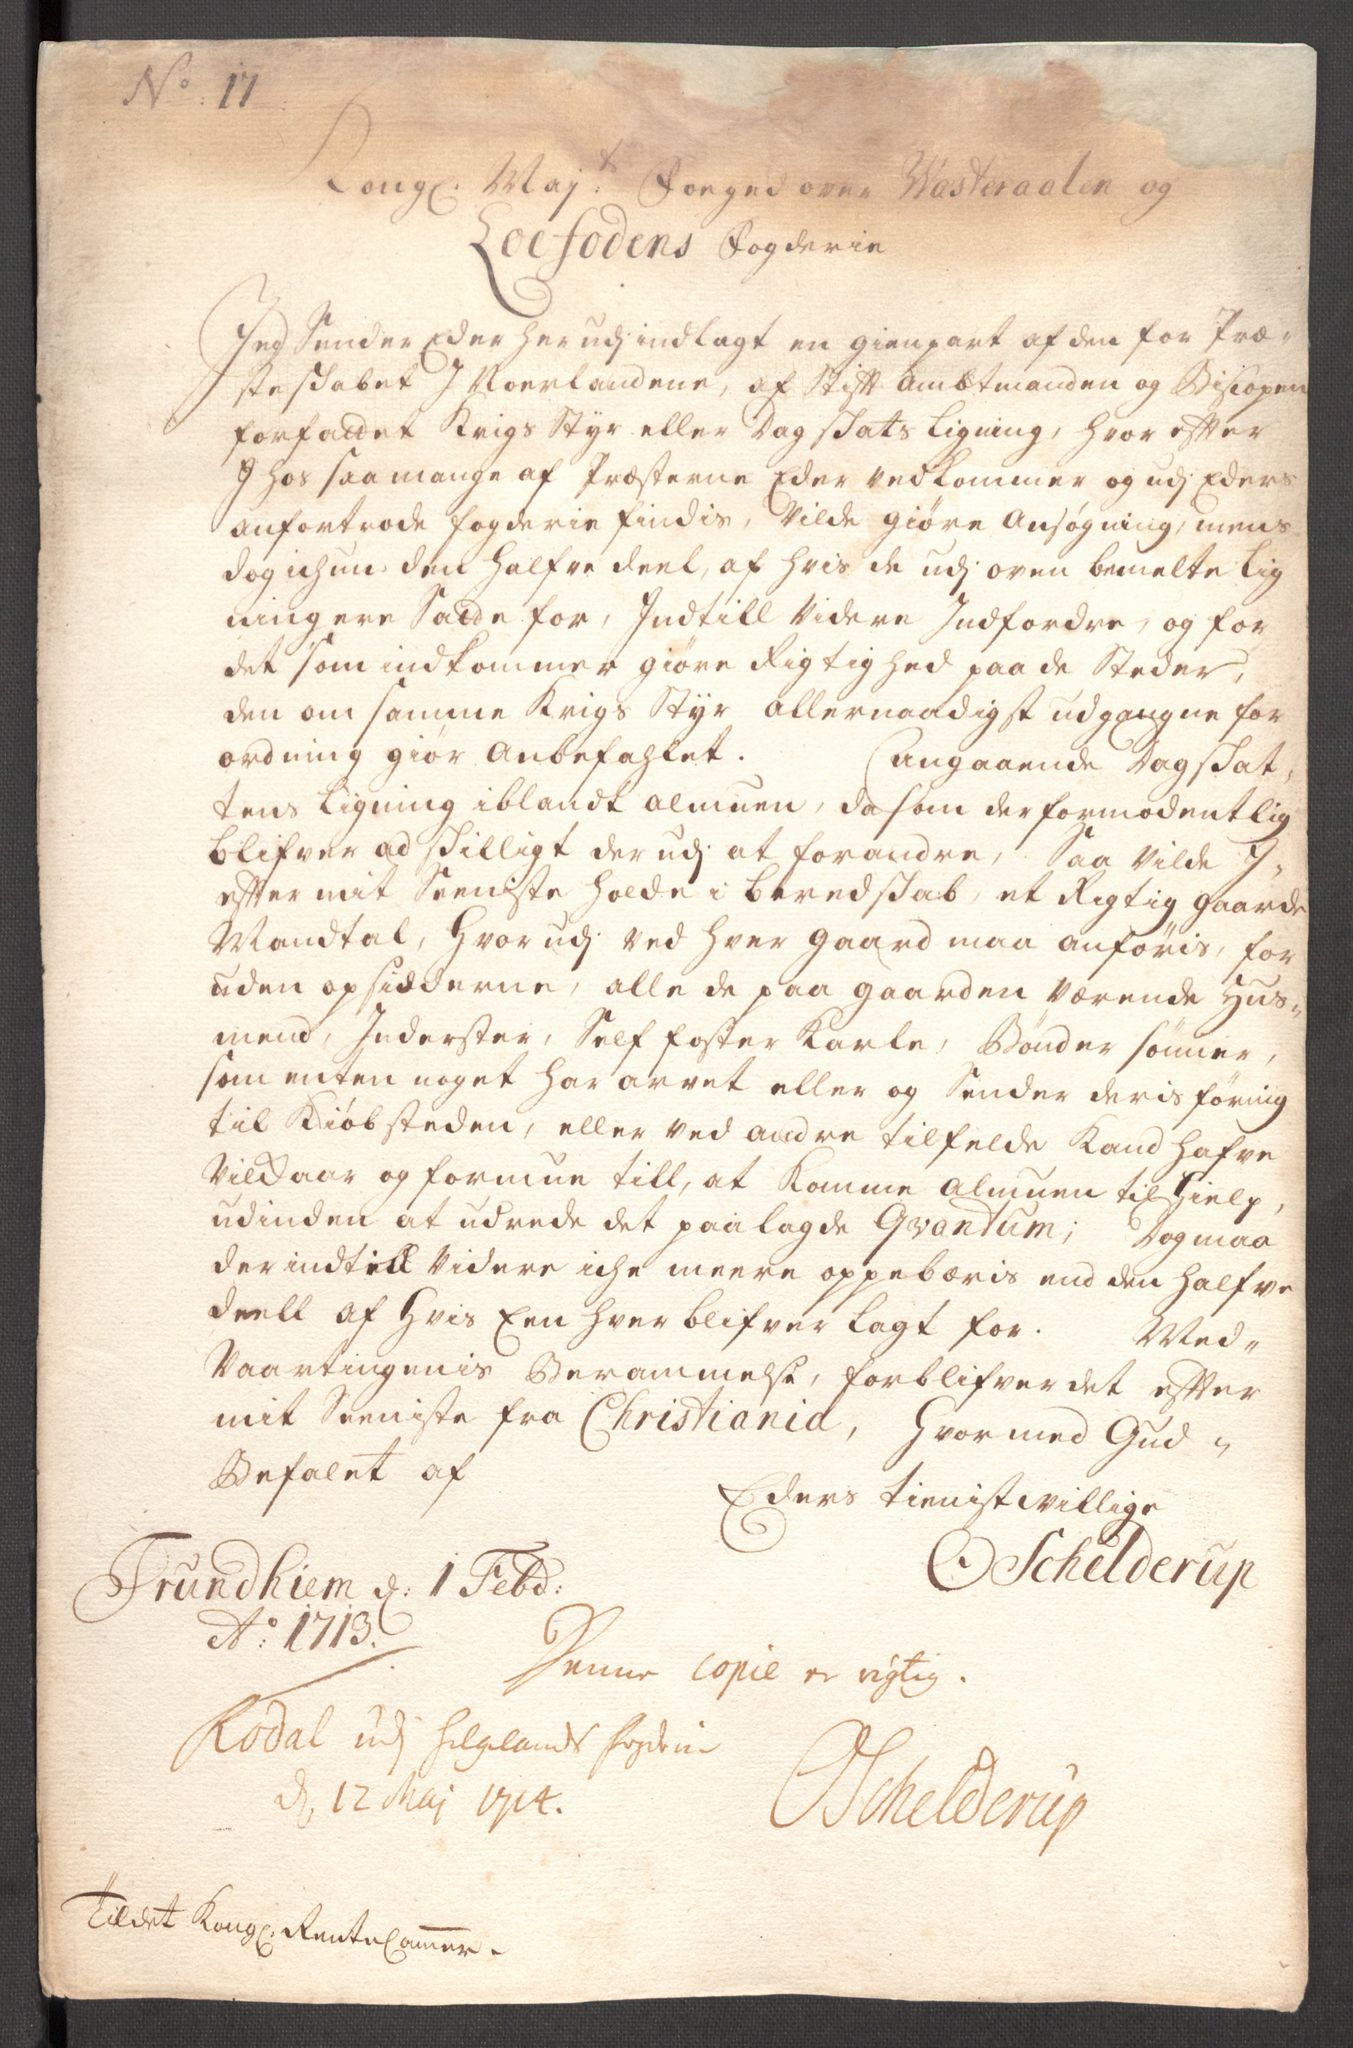 No: 17
Kongl. Maj:ts Foeged over Wasteraalen og
Loefodens Fogderie
Jeg Sender Eder her udj indlagt en gienpart af den for Præ-
steskabet I Noerlandene, af Stift Ambtmanden og Biscopen
forfattet Krigs Styr eller Dagskats Ligning, hvor efter
I hos saa mange af Præsterne Eder vedkommer og udj Eders
anfortrode fogderie findis, Vilde giøre Ansøgning, mens
dog ichun den halfve deel, af hvis de udj oven bemelte Lig
ning ere Satte for, Indtill Videre Indfordre, og for
det som indkommer giøre Rigtighed paa de Steder,
den om samme Krigs Styr allernaadigst udgangne for
ordning giør Anbefahlet. Angaaende Dagskat,
tens Ligning iblandt almuen, da som der formodentlig
blifver adskilligt der udj at forandre, Saa Vilde I,
efter mit Seeniste holde i beredskab, et Rigtig gaarde
Mandtal, Hvor udj ved hver gaard maa anføris, for
uden opsidderne, alle de paa gaarden værende Hus-
mend, Inderster, Self foster Karle, Bønder sønner,
som enten noget har arvet eller og Sender deris føring
til Kiøbsteden, eller ved andre tilfelde Kand hafve
Vilkaar og formue till, at komme almuen til Hielp,
udinden at udrede det paalagde Qvantum; Dog maa
der indtill Videre iche meere oppebæris end den halfve
deell af Hvis Een hver blifver lagt for. Wed-
Vaartingenis Berammelse, forblifver det efter
mit Seeniste fra Christiania, Hvor med Gud -
Befalet af
Eders tienistvillige
O Schelderup
Trundhiem d: 1 Febr:
Ao: 1713.
Denne copie er rigtig.
Rødal udj Helgelands fogderie
d. 12 Maj 1714.
OSchelderup
Til det Kongl. Rente Cammer.